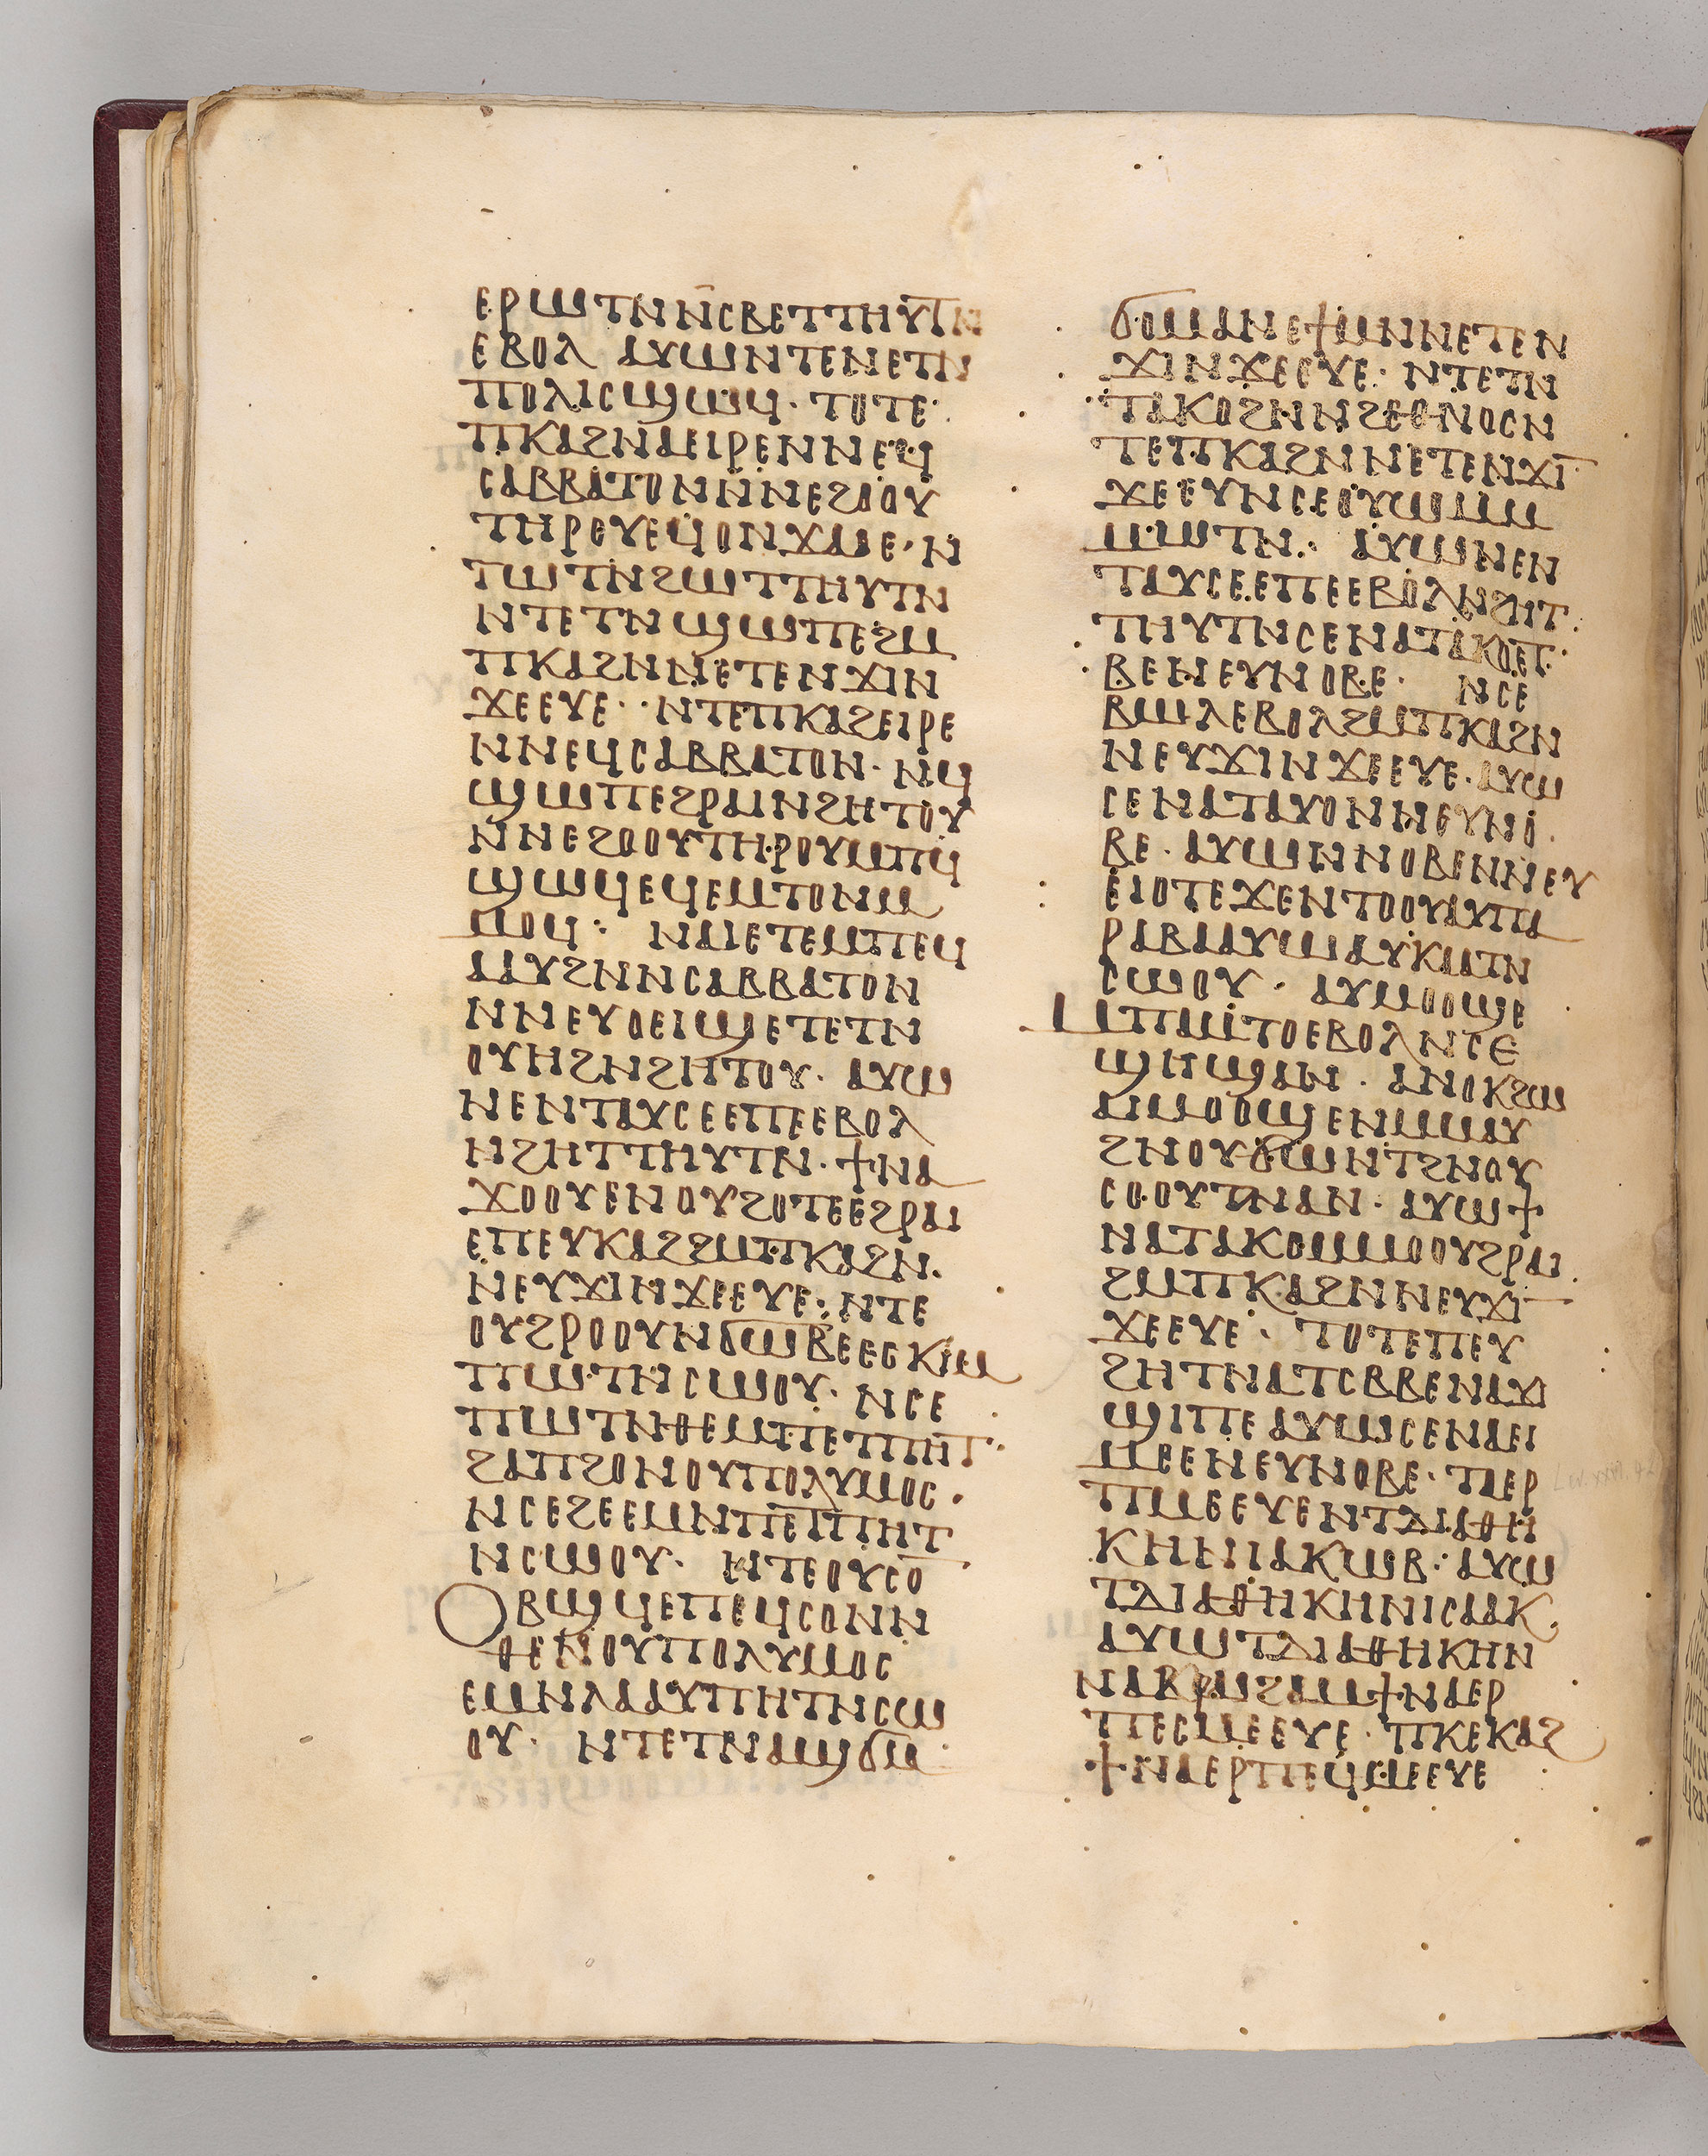 ⲉⲣⲱⲧⲛⲛ̅ⲥⲃⲉⲧⲧⲏⲩⲧ̅ⲛ
ⲉⲃⲟⲗ ⲁⲩⲱⲛⲧⲉⲛⲉⲧⲛ
ⲡⲟⲗⲓⲥϣⲱϥ· ⲧⲟⲧⲉ·
ⲡⲕⲁϩⲛⲁⲉⲓⲣⲉⲛⲛⲉϥ
ⲥⲁⲃⲃⲁⲧⲟⲛⲛⲛⲉϩⲟⲟⲩ
ⲧⲏⲣⲉⲩⲉϥⲟⲛϫⲁⲓⲉ·ⲛ
ⲧⲱⲧⲛϩⲱⲧⲧⲏⲩⲧⲛ
ⲛⲧⲉⲧⲛϣⲱⲡⲉϩⲙ
ⲡⲕⲁϩⲛⲛⲉⲧⲉⲛϫⲓⲛ
ϫⲉⲉⲩⲉ··ⲛⲧⲉⲡⲕⲁϩⲉⲓⲣⲉ
ⲛⲛⲉϥⲥⲁⲃⲃⲁⲧⲟⲛ·ⲛϥ
ϣⲱⲡⲉϩⲣⲁⲓⲛϩⲏⲧⲟⲩ
ⲛⲛⲉϩⲟⲟⲩⲧⲏⲣⲟⲩⲙⲡϥ
ϣⲱϥⲉϥⲉⲙⲧⲟⲛⲙ
ⲙⲟϥ: ⲛⲁⲓⲉⲧⲉⲙⲡⲉϥ
ⲁⲁⲩϩⲛⲛⲥⲁⲃⲃⲁⲧⲟⲛ
ⲛⲛⲉⲩⲟⲉⲓϣⲉⲧⲉⲧⲛ
ⲟⲩⲏϩⲛϩⲏⲧⲟⲩ· ⲁⲩⲱ
ⲛⲉⲛⲧⲁⲩⲥⲉⲉⲡⲉⲉⲃⲟⲗ
ⲛϩⲏⲧⲧⲏⲩⲧⲛ·ϯⲛⲁ
ϫⲟⲟⲩⲉⲛⲟⲩϩⲟⲧⲉⲉϩⲣⲁⲓ
ⲉⲡⲉⲩⲕⲁϩϩⲙⲡⲕⲁϩⲛ·
ⲛⲉⲩϫⲓⲛϫⲉⲉⲩⲉ:ⲛⲧⲉ
ⲟⲩϩⲣⲟⲟⲩⲛϭⲱⲃⲉⲉⲥⲕⲓⲙ
ⲡⲱⲧⲛⲥⲱⲟⲩ· ⲛⲥⲉ
ⲡⲱⲧⲛⲑⲉⲙⲡⲉⲧⲡⲏⲧ·
ϩⲁⲡϩⲟⲛⲟⲩⲡⲟⲗⲩⲙⲟⲥ·
ⲛⲥⲉϩⲉⲉⲙⲛⲡⲉⲧⲡⲏⲧ
ⲛⲥⲱⲟⲩ· ⲛⲧⲉⲟⲩⲥⲟ̅
ⲟⲃϣϥⲉⲡⲉϥⲥⲟⲛⲛ
ⲑⲉⲛⲟⲩⲡⲟⲗⲩⲙⲟⲥ
ⲉⲙⲛⲗⲁⲁⲩⲡⲏⲧⲛⲥⲱ
ⲟⲩ· ⲛⲧⲉⲧⲛⲁϣϭⲙ
ϭⲟⲙⲁⲛⲉϯⲙⲛⲛⲉⲧⲉⲛ
ϫⲓⲛϫⲉⲉⲩⲉ· ⲛⲧⲉⲧⲛ
ⲧⲁⲕⲟϩⲛⲛϩⲉⲑⲛⲟⲥⲛ
ⲧⲉⲡⲕⲁϩⲛⲛⲉⲧⲉⲛϫⲓ̅
ϫⲉⲉⲩⲛⲥⲉⲟⲩⲱⲙⲙ
ⲙⲱⲧⲛ· ⲁⲩⲱⲛⲉⲛ
ⲧⲁⲩⲥⲉⲉⲡⲉⲉⲃⲟⲗⲛϩⲏⲧ
ⲧⲏⲩⲧⲛⲥⲉⲛⲁⲧⲁⲕⲟⲉⲧ·
ⲃⲉⲛⲉⲩⲛⲟⲃⲉ· ⲛⲥⲉ
ⲃⲱⲗⲉⲃⲟⲗϩⲙⲡⲕⲁϩⲛ
ⲛⲉⲩϫⲓⲛϫⲉⲉⲩⲉ·ⲁⲩⲱ
ⲥⲉⲛⲁⲧⲁⲩⲟⲛⲛⲉⲩⲛⲟ
ⲃⲉ·ⲁⲩⲱⲛⲛⲟⲃⲉⲛⲛⲉⲩ
ⲉⲓⲟⲧⲉϫⲉⲛⲧⲟⲟⲩⲁⲩⲡⲁ
ⲣⲁⲃⲁⲁⲩⲱⲁⲩⲕⲁⲁⲧⲛ
ⲥⲱⲟⲩ· ⲁⲩⲙⲟⲟϣⲉ
ⲙⲡⲙ̇ⲧⲟⲉⲃⲟⲗⲛⲥⲉ
ϣⲏϣⲁⲛ·ⲁⲛⲟⲕϩⲱ
ⲁⲓⲙⲟⲟϣⲉⲛⲙⲙⲁⲩ
ϩⲛⲟⲩϭⲱⲛⲧϩⲛⲟⲩ
ⲥⲟⲟⲩⲧⲛⲁⲛ·ⲁⲩⲱϯ
ⲛⲁⲧⲁⲕⲟⲙⲙⲟⲟⲩϩⲣⲁⲓ
ϩⲙⲡⲕⲁϩⲛⲛⲉⲩϫⲓ̅
ϫⲉⲉⲩⲉ· ⲧⲟⲧⲉⲡⲉⲩ
ϩⲏⲧⲛⲁⲧⲥⲃⲃⲉⲛⲁϫⲓ
ϣⲓⲡⲉⲁⲩⲱⲥⲉⲛⲁⲉⲓ
ⲙⲉⲉⲛⲉⲩⲛⲟⲃⲉ·ⲧⲁⲉⲣ
ⲡⲙⲉⲉⲩⲉⲛⲧⲇⲓⲁⲑⲏ
ⲕⲏⲛⲓⲁⲕⲱⲃ:ⲁⲩⲱ
ⲧⲇⲓⲁⲑⲏⲕⲏⲛⲓⲥⲁⲁⲕ
ⲁⲩⲱⲧⲇⲓⲁⲑⲏⲕⲏⲛ
ⲛⲁⲃⲣⲁϩⲁⲙϯⲛⲁⲉⲣ
ⲡⲉⲥⲙⲉⲉⲩⲉ·ⲡⲕⲉⲕⲁϩ
ϯⲛⲁⲉⲣⲡⲉϥⲙⲉⲉⲩⲉ